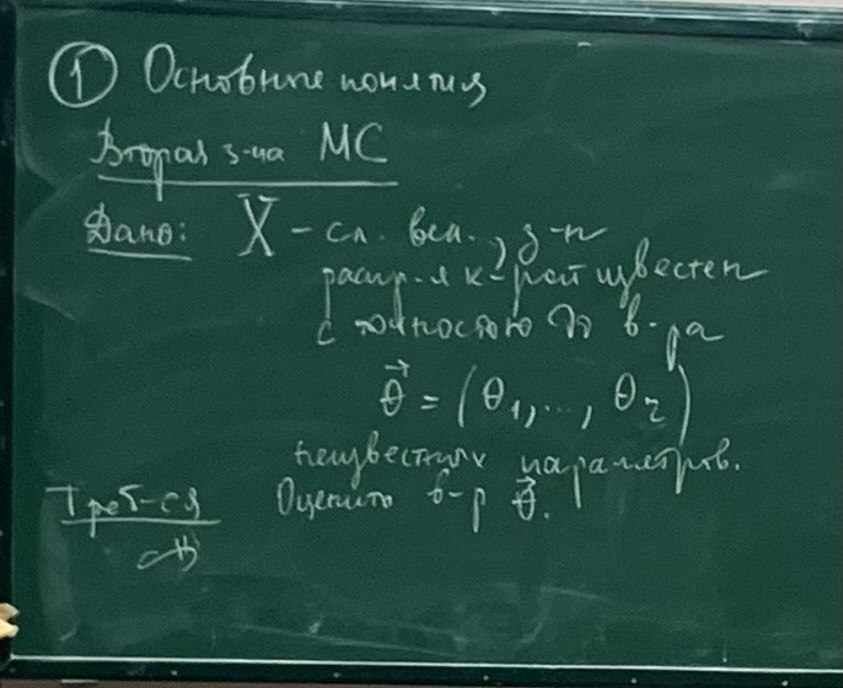 ① Основные понятия
Вторая з-ча МС
Дано: X – сл. вел., з-н
распр-я к-рой известен
с точностью до в-ра
θ⃗ = (θ₁, ..., θᵣ)
неизвестных параметров.
Треб-ся Оценить в-р θ⃗.